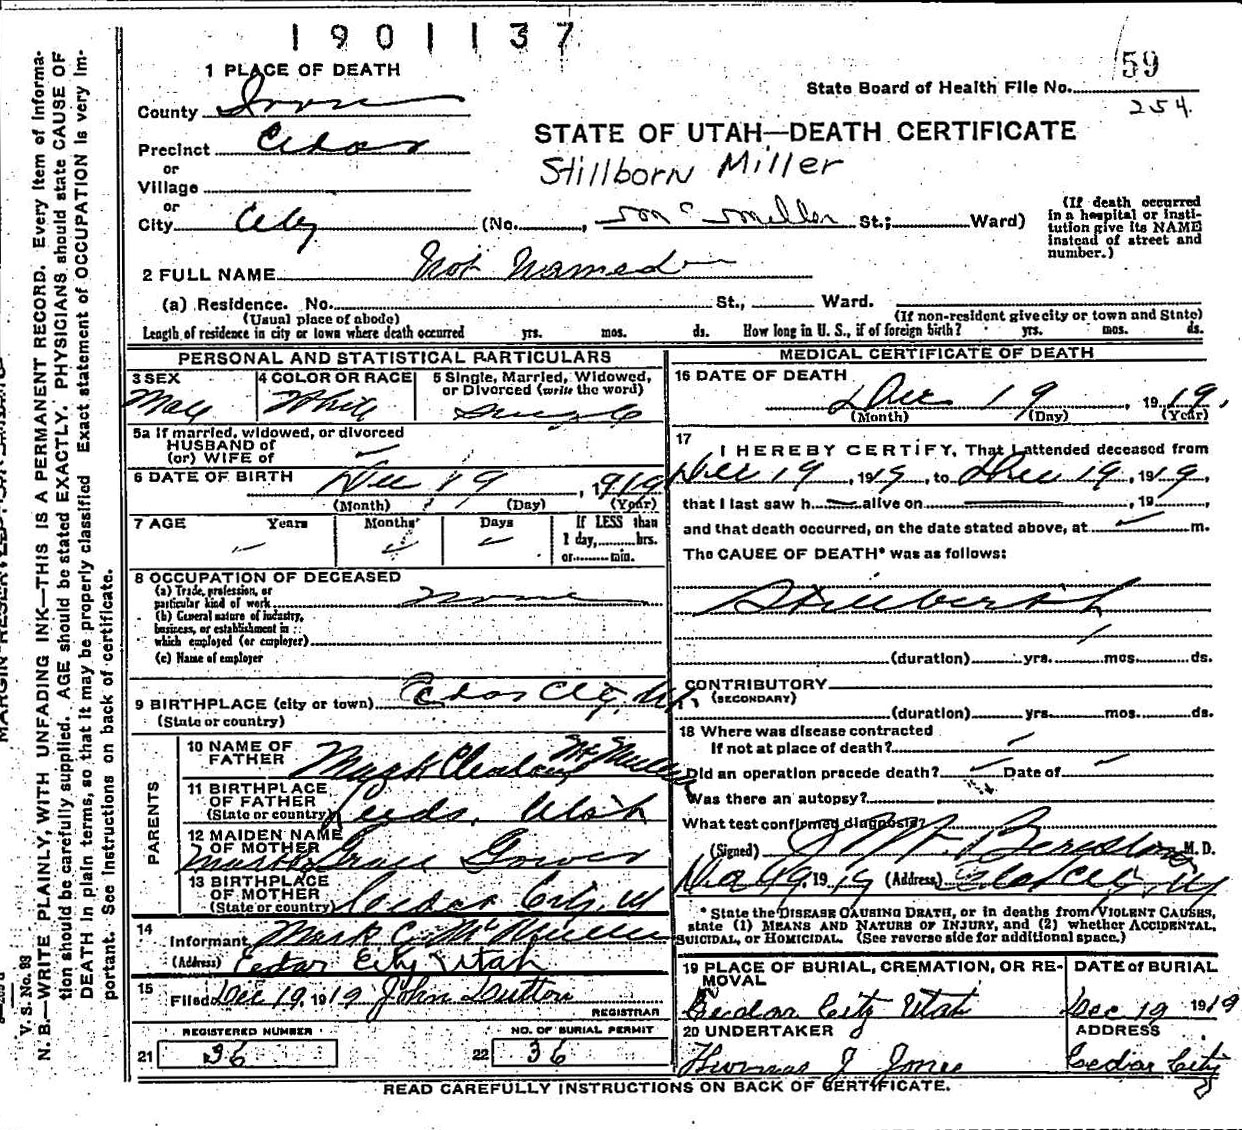 1901137
1 PLACE OF DEATH
59
State Board of Health File No.
254.
County Iron
STATE OF UTAH—DEATH CERTIFICATE
Precinct Cedar
Stillborn Miller
or
Village
or
City City (No. , St.; Ward)
(If death occurred
in a hospital or insti-
tution give its NAME
instead of street and
number.)
2 FULL NAME Not Named
(a) Residence. No. St., Ward.
(Usual place of abode)
(If non-resident give city or town and State)
Length of residence in city or town where death occurred yrs. mos. ds. How long in U. S., if of foreign birth? yrs. mos. ds.
PERSONAL AND STATISTICAL PARTICULARS
3 SEX
Male
4 COLOR OR RACE
White
5 Single, Married, Widowed,
or Divorced (write the word)
Single
5a If married, widowed, or divorced
HUSBAND of
(or) WIFE of
6 DATE OF BIRTH Dec 19, 1919
(Month) (Day) (Year)
7 AGE Years Months Days
If LESS than
1 day, hrs.
or min.
8 OCCUPATION OF DECEASED
(a) Trade, profession, or
particular kind of work none
(b) General nature of industry,
business, or establishment in
which employed (or employer)
(c) Name of employer
9 BIRTHPLACE (city or town) Cedar City, Ut.
(State or country)
PARENTS
10 NAME OF
FATHER Mark
11 BIRTHPLACE
OF FATHER
(State or country) Leeds, Utah
12 MAIDEN NAME
OF MOTHER
Grace
13 BIRTHPLACE
OF MOTHER
(State or country) Cedar City, Ut
14
Informant Mark C.
(Address) Cedar City Utah
15
Filed Dec 19, 1919 John
REGISTRAR
REGISTERED NUMBER
21 36
NO. OF BURIAL PERMIT
22 36
MEDICAL CERTIFICATE OF DEATH
16 DATE OF DEATH
Dec 19, 1919.
(Month) (Day) (Year)
17
I HEREBY CERTIFY, That I attended deceased from
Dec 19, 1919, to Dec 19, 1919,
that I last saw h alive on , 19
and that death occurred, on the date stated above, at m.
The CAUSE OF DEATH* was as follows:
Stillbirth
(duration) yrs. mos. ds.
CONTRIBUTORY
(SECONDARY)
(duration) yrs. mos. ds.
18 Where was disease contracted
if not at place of death?
Did an operation precede death? Date of
Was there an autopsy?
What test confirmed diagnosis?
(Signed) J M. M. D.
19, 1919 (Address) City, Ut
* State the DISEASE CAUSING DEATH, or in deaths from VIOLENT CAUSES,
state (1) MEANS AND NATURE OF INJURY, and (2) whether ACCIDENTAL,
SUICIDAL, or HOMICIDAL. (See reverse side for additional space.)
19 PLACE OF BURIAL, CREMATION, OR RE-
MOVAL
Cedar City Utah
DATE of BURIAL
Dec 19 1919
20 UNDERTAKER
Thomas J Jones
ADDRESS
Cedar City
READ CAREFULLY INSTRUCTIONS ON BACK OF CERTIFICATE.
V. S. No. 83
N. B.—WRITE PLAINLY, WITH UNFADING INK—THIS IS A PERMANENT RECORD. Every item of informa-
tion should be carefully supplied. AGE should be stated EXACTLY. PHYSICIANS should state CAUSE OF
DEATH in plain terms, so that it may be properly classified Exact statement of OCCUPATION is very im-
portant. See instructions on back of certificate.